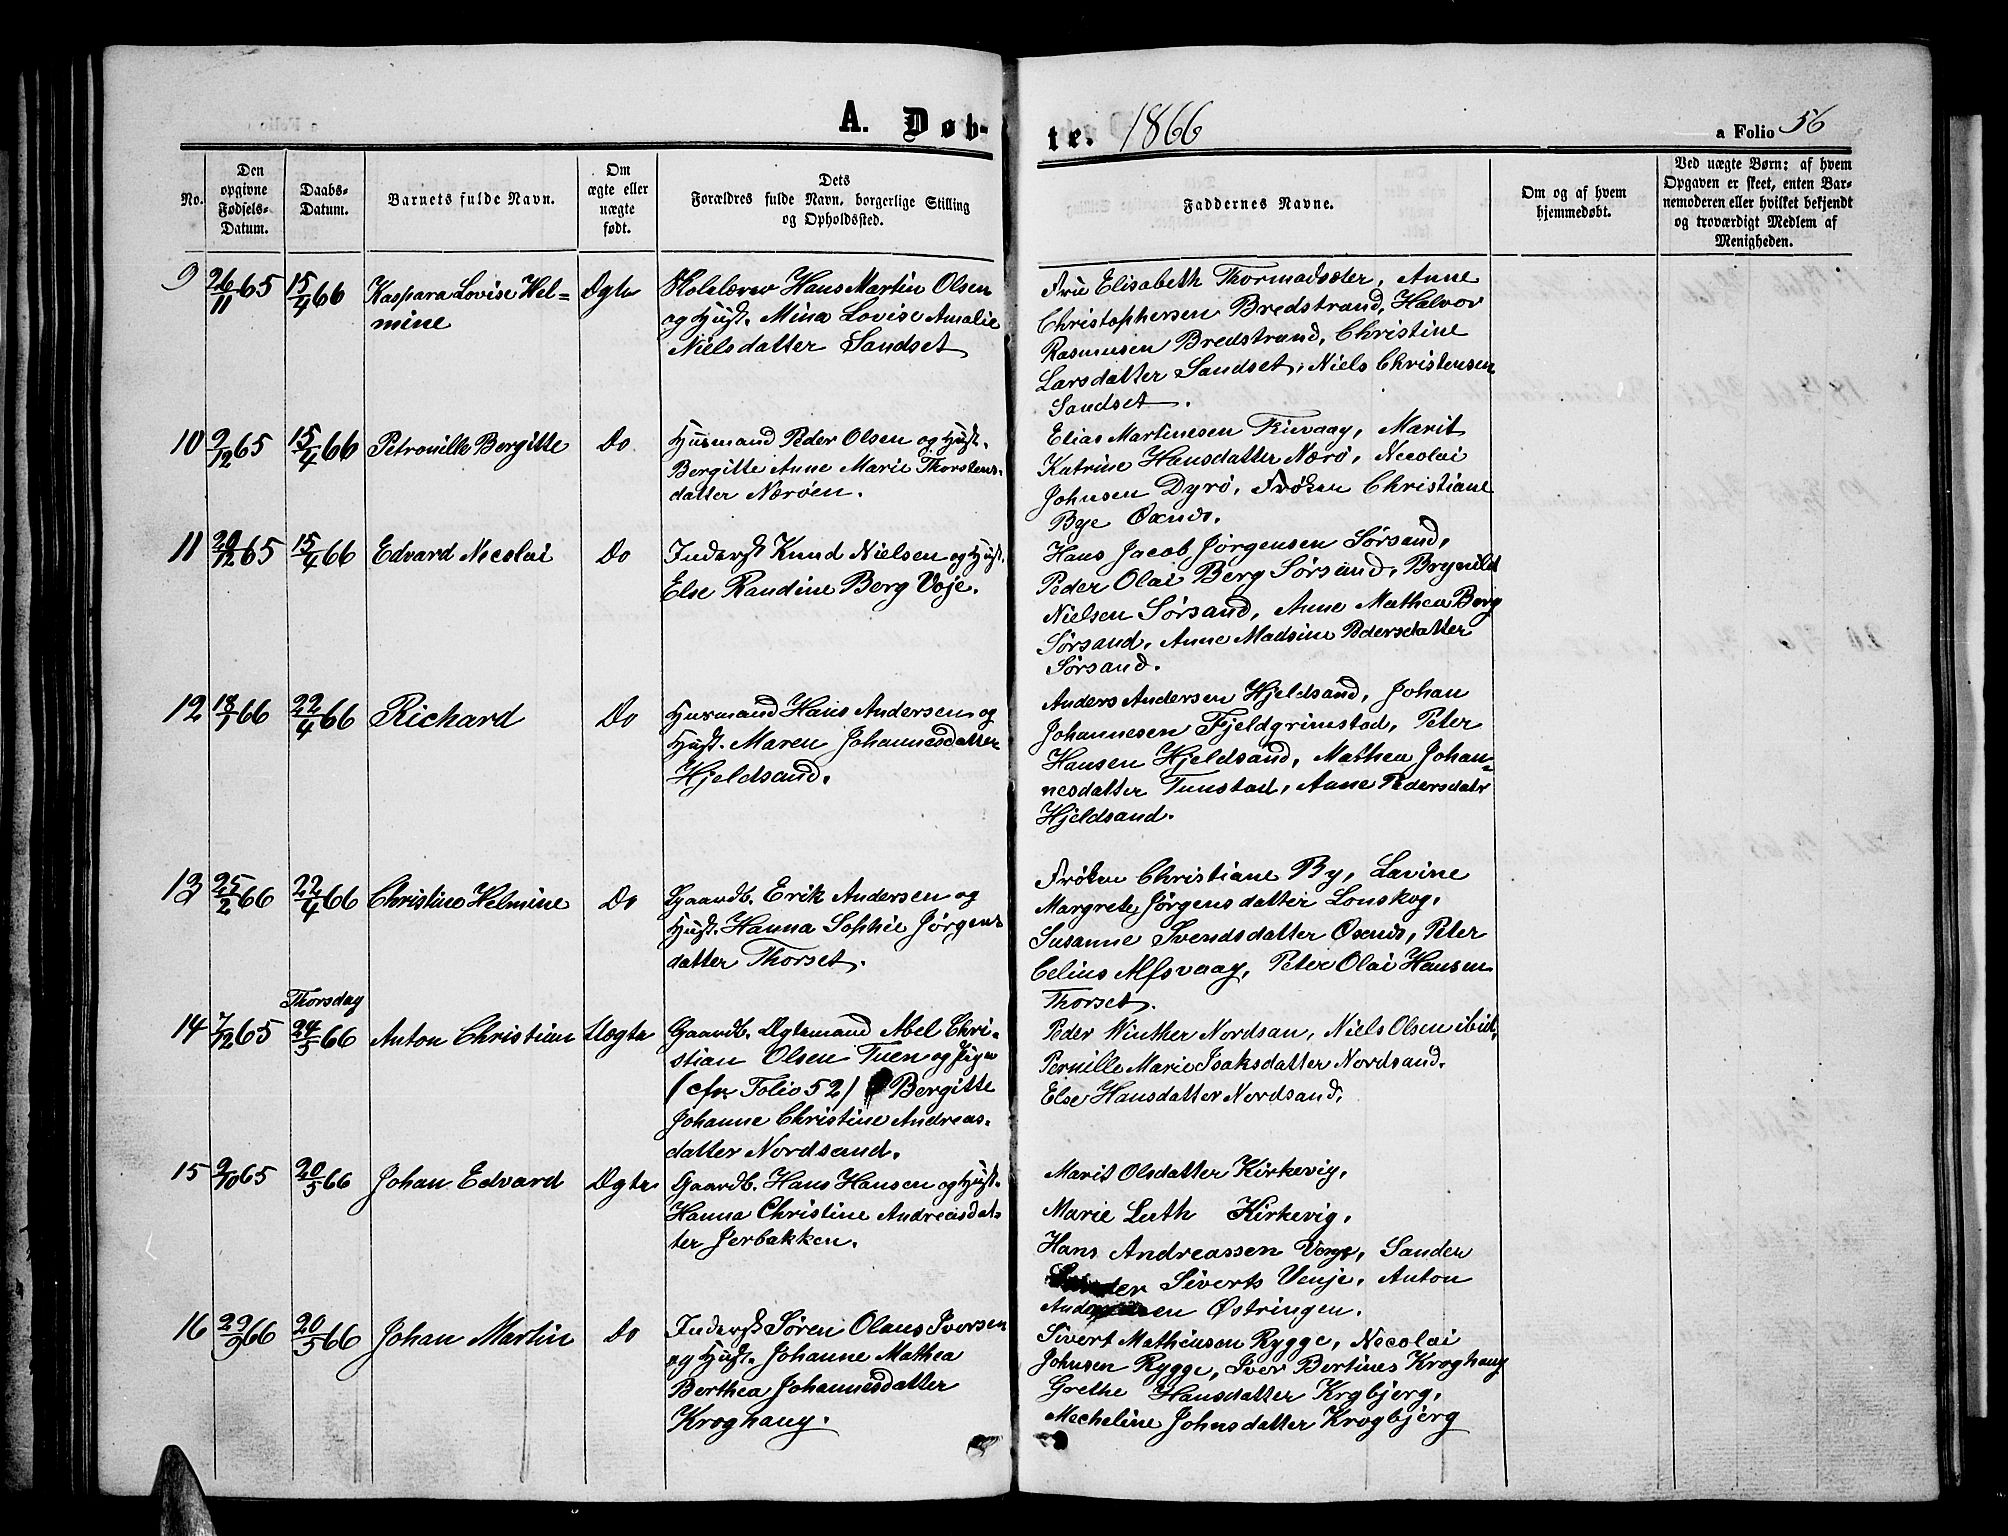 A. Døb-
te. 1866
a Folio 56
No.
Den opgivne Fødsels-Datum.
Daabs-Datum.
Barnets fulde Navn.
Om ægte eller uægte født.
Dets Forældres fulde Navn, borgerlige Stilling og Opholdssted.
Faddernes Navne.
Om og af hvem hjemmedøbt.
Ved uægte Børn: af hvem Opgaven er skeet, enten Barnemoderen eller hvilket bekjendt og troværdigt Medlem af Menigheden.
9 26/11 65 15/4 66 Kaspara Lovise Hel=
mine
Ægte
Skolelærer Hans Martin Olsen
og Hust. Mina Lovise Amalie
Nielsdatter Sandset
Fru Elisabeth Thormodsæter, Anne
Christophersen Bredstrand, Halvor
Rasmusen Bredstrand, Christine
Larsdatter Sandset, Niels Christensen
Sandset.
10 9/12 65 15/4 66 Petronille Bergitte Do
Husmand Peder Olsen og Hust.
Bergitte Anne Marie Thorstens-
datter Nærøen.
Elias Martinesen Finvaag, Marit
Katrine Hansdatter Nærø, Necolai
Johnsen Dyrø, Frøken Christiane
Bye Oxnes.
11 20/12 65 15/4 66 Edvard Necolai Do
Inderst Knud Nielsen og Hust.
Else Randine Berg Voje.
Hans Jacob Jørgensen Sørsand,
Peder Olai Berg Sørsand, Brynild
Nielsen Sørsand, Anne Mathea Berg
Sørsand, Anne Madsine Pedersdatter
Sørsand.
12 18/1 66 22/4 66 Richard Do
Husmand Hans Andersen og
Hust. Maren Johannesdatter
Hjeldsand.
Anders Andersen Hjeldsand, Johan
Johannesen Fjeldgrimstad, Peter
Hansen Hjeldsand, Mathea Johan-
nesdatter Tunstad, Anne Pedersdatr
Hjeldsand.
13 25/2 66 22/4 66 Christine Helmine Do
Gaardb. Erik Andersen og
Hust. Hanna Sophie Jørgens-
datter Thorset.
Frøken Christiane By, Lavine
Margrete Jørgensdatter Lonskog,
Susanne Svendsdatter Oxnes, Peter
Celius Alfsvaag, Peter Olai Hansen
Thorset.
Thorsdag
14 7/12 65 24/5 66 Anton Christian Uægte
Gaardb. Ægtemand Abel Chri-
stian Olsen Tuen og Pige
(cfr Folio 52) Bergitte
Johanne Christine Andreas-
datter Nordsand.
Peder Winther Nordsan, Niels Olsen ibid,
Pernille Marie Isaksdatter Nordsand.
Else Hansdatter Nordsand.
15 9/10 65 20/5 66 Johan Edvard Ægte
Gaardb. Hans Hansen og Hust.
Hanna Christine Andreasdat-
ter Jerbakken.
Marit Olsdatter Kirkevig,
Marie Luth Kirkevig,
Hans Andreassen Vorge, Sander
Siverts Venje, Anton
Østringen.
16 29/9 66 20/5 66 Johan Martin Do
Inderst Søren Olaus Iversen
og Hust. Johanne Mathea
Berthea Johannesdatter
Kroghaug.
Sivert Matheusen Rygge, Necolai
Johnsen Rygge, Iver Bertines Kroghaug
Grethe Hansdatter Krgbjerg,
Mecheline Johnsdatter Krogbjerg